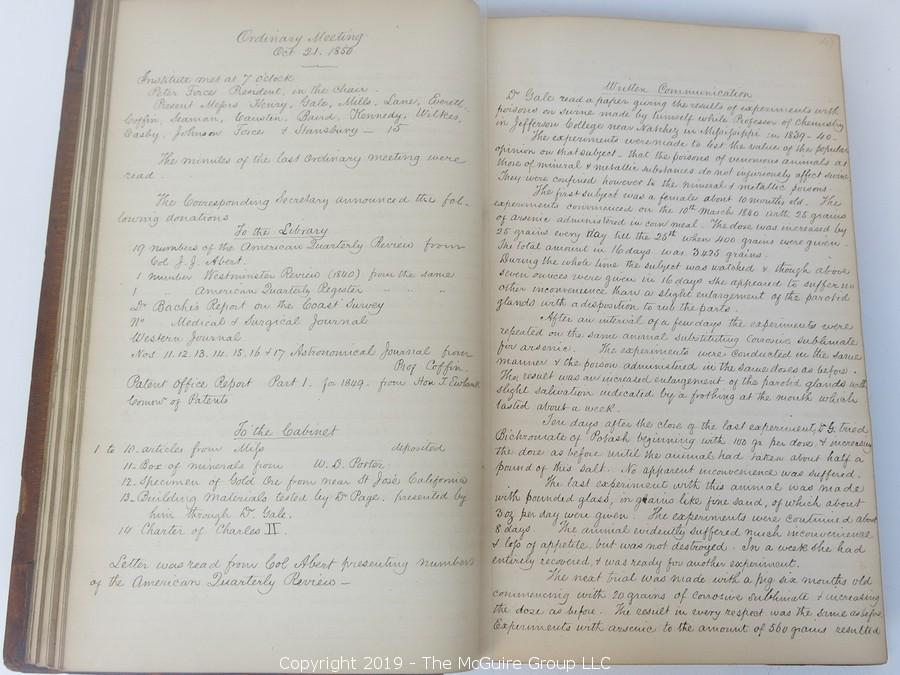 Ordinary Meeting
Oct 21. 1850
Institute met at 7 o'clock
Peter Force President, in the chair.
Present Messrs Henry, Gale, Mills, Lane, Everett,
Coffin, Seaman, Causten, Baird, Kennedy, Wilkes,
Easby, Johnson Force & Stansbury — 15
The minutes of the last Ordinary meeting were
read.
The Corresponding Secretary announced the fol-
lowing donations
To the Library
19 numbers of the American Quarterly Review from
Col. J. J. Abert.
1 number Westminster Review (1840) from the same
1 American Quarterly Register " " "
Dr Bache's Report on the Coast Survey
No Medical & Surgical Journal
Western Journal
Nos 11. 12. 13. 14. 15. 16 & 17 Astronomical Journal from
Prof Coffin.
Patent Office Report Part 1. for 1849. from Hon. T. Ewbank
Comr of Patents
To the Cabinet
1 to 10. articles from Miss deposited
11. Box of minerals from W. D. Porter
12. Specimen of Gold Ore from near St José California
13. Building Materials tested by Dr Page. presented by
him through Dr. Gale.
14 Charter of Charles II.
Letter was read from Col Abert presenting numbers
of the American Quarterly Review —
Written Communication
Dr Gale read a paper giving the results of experiments with
poisons on swine made by himself while Professor of Chemistry
in Jefferson College near Natchez in Mississippi in 1839-40.
The experiments were made to test the value of the popular
opinion on that subject - that the poisons of venomous animals as
those of mineral & metallic substances do not injuriously affect swine
They were confined however to the mineral & metallic poisons.
The first subject was a female about 10 months old. The
experiments commenced on the 10th March 1840 with 25 grains
of arsenic administered in corn meal. The dose was increased by
25 grains every day till the 25th when 400 grains were given.
The total amount in 16 days. was 3425 grains.
During the whole time the subject was watched & though above
seven ounces were given in 16 days she appeared to suffer no
other inconvenience than a slight enlargement of the parotid
glands with a disposition to rub the parts.
After an interval of a few days the experiments were
repeated on the same animal substituting corrosive sublimate
for arsenic. The experiments were conducted in the same
manner & the poison administered in the same doses as before.
The result was an increased enlargement of the parotid glands with
slight salivation indicated by a frothing at the mouth which
lasted about a week.
Ten days after the close of the last experiment, Dr G. tried
Bichromate of Potash beginning with 100 gr per dose & increasing
the dose as before until the animal had taken about half a
pound of this salt. No apparent inconvenience was suffered.
The last experiment with this animal was made
with pounded glass, in grains like fine sand, of which about
3 oz per day were given. The experiments were continued about
8 days. The animal evidently suffered much inconvenience
& loss of appetite, but was not destroyed. In a week she had
entirely recovered, & was ready for another experiment.
The next trial was made with a pig six months old
commencing with 20 grains of corrosive sublimate & increasing
the dose as before. The result in every respect was the same as before.
Experiments with arsenic to the amount of 560 grains resulted
Copyright 2019 - The McGuire Group LLC